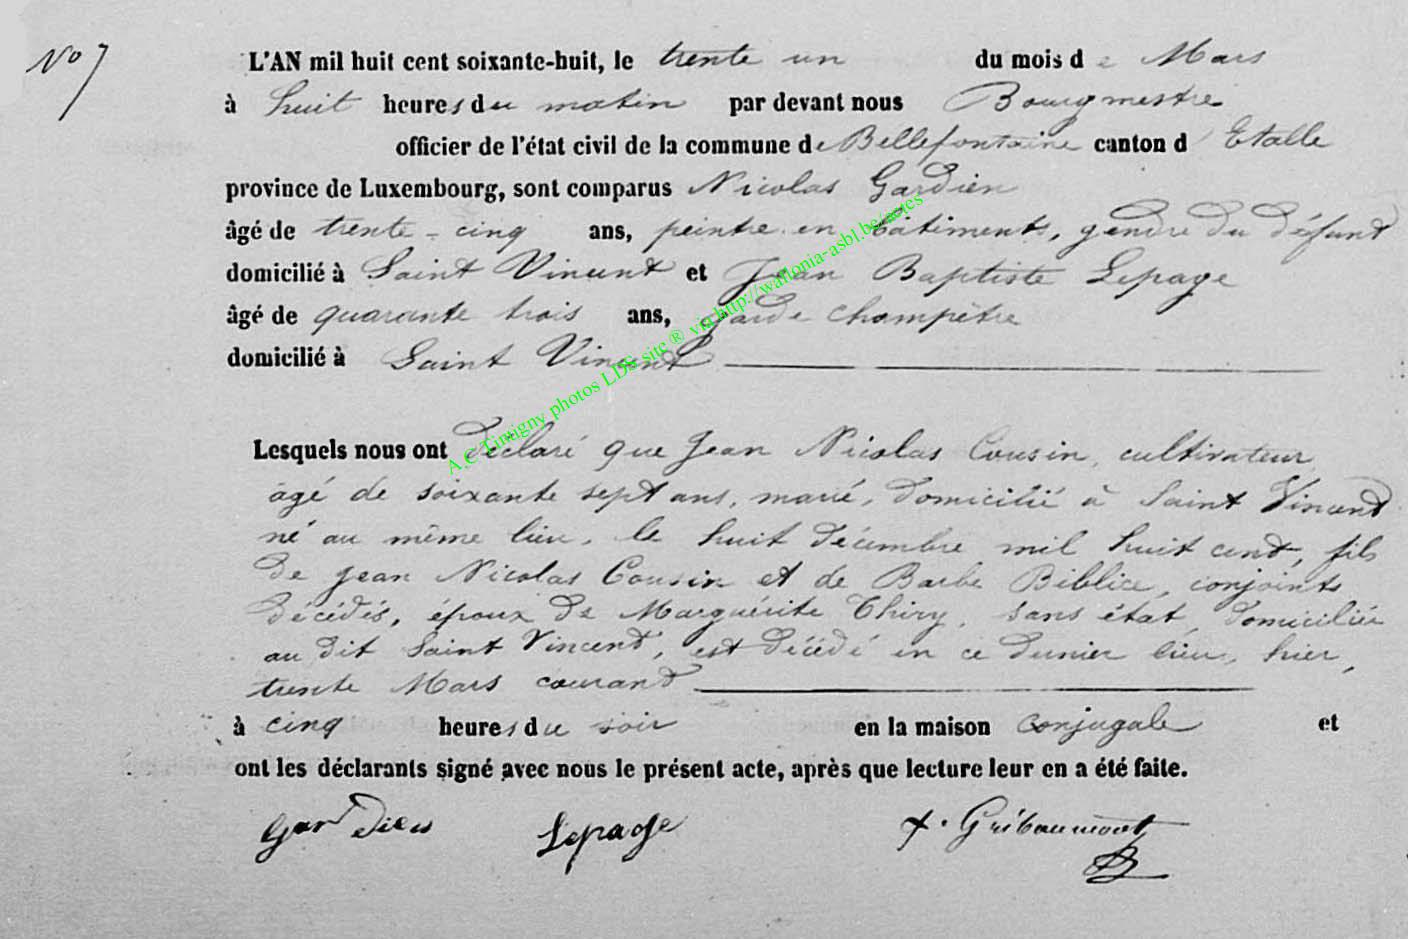 No 7
L'AN mil huit cent soixante-huit, le trente un du mois de Mars
à huit heures du matin par devant nous Bourgmestre
officier de l'état civil de la commune de Bellefontaine canton d'Etalle
province de Luxembourg, sont comparus Nicolas Gardien
âgé de trente-cinq ans, peintre en bâtiments, gendre du défunt
domicilié à Saint Vincent et Jean Baptiste Lepage
âgé de quarante trois ans, garde champêtre
domicilié à Saint Vincent
Lesquels nous ont déclaré que Jean Nicolas Cousin, cultivateur
âgé de soixante sept ans, marié, domicilié à Saint Vincent
né au même lieu, le huit décembre mil huit cent, fils
de Jean Nicolas Cousin et de Barbe Biblice, conjoints
décédés, époux de Marguérite Thiry, sans état, domiciliée
au dit Saint Vincent, est décédé en ce dernier lieu, hier,
trente Mars courant
à cinq heures du soir en la maison conjugale et
ont les déclarants signé avec nous le présent acte, après que lecture leur en a été faite.
Gardien Lepage F. Gribaumont
A.C Tintigny photos LDS site ® via http://wallonia-asbl.be/actes